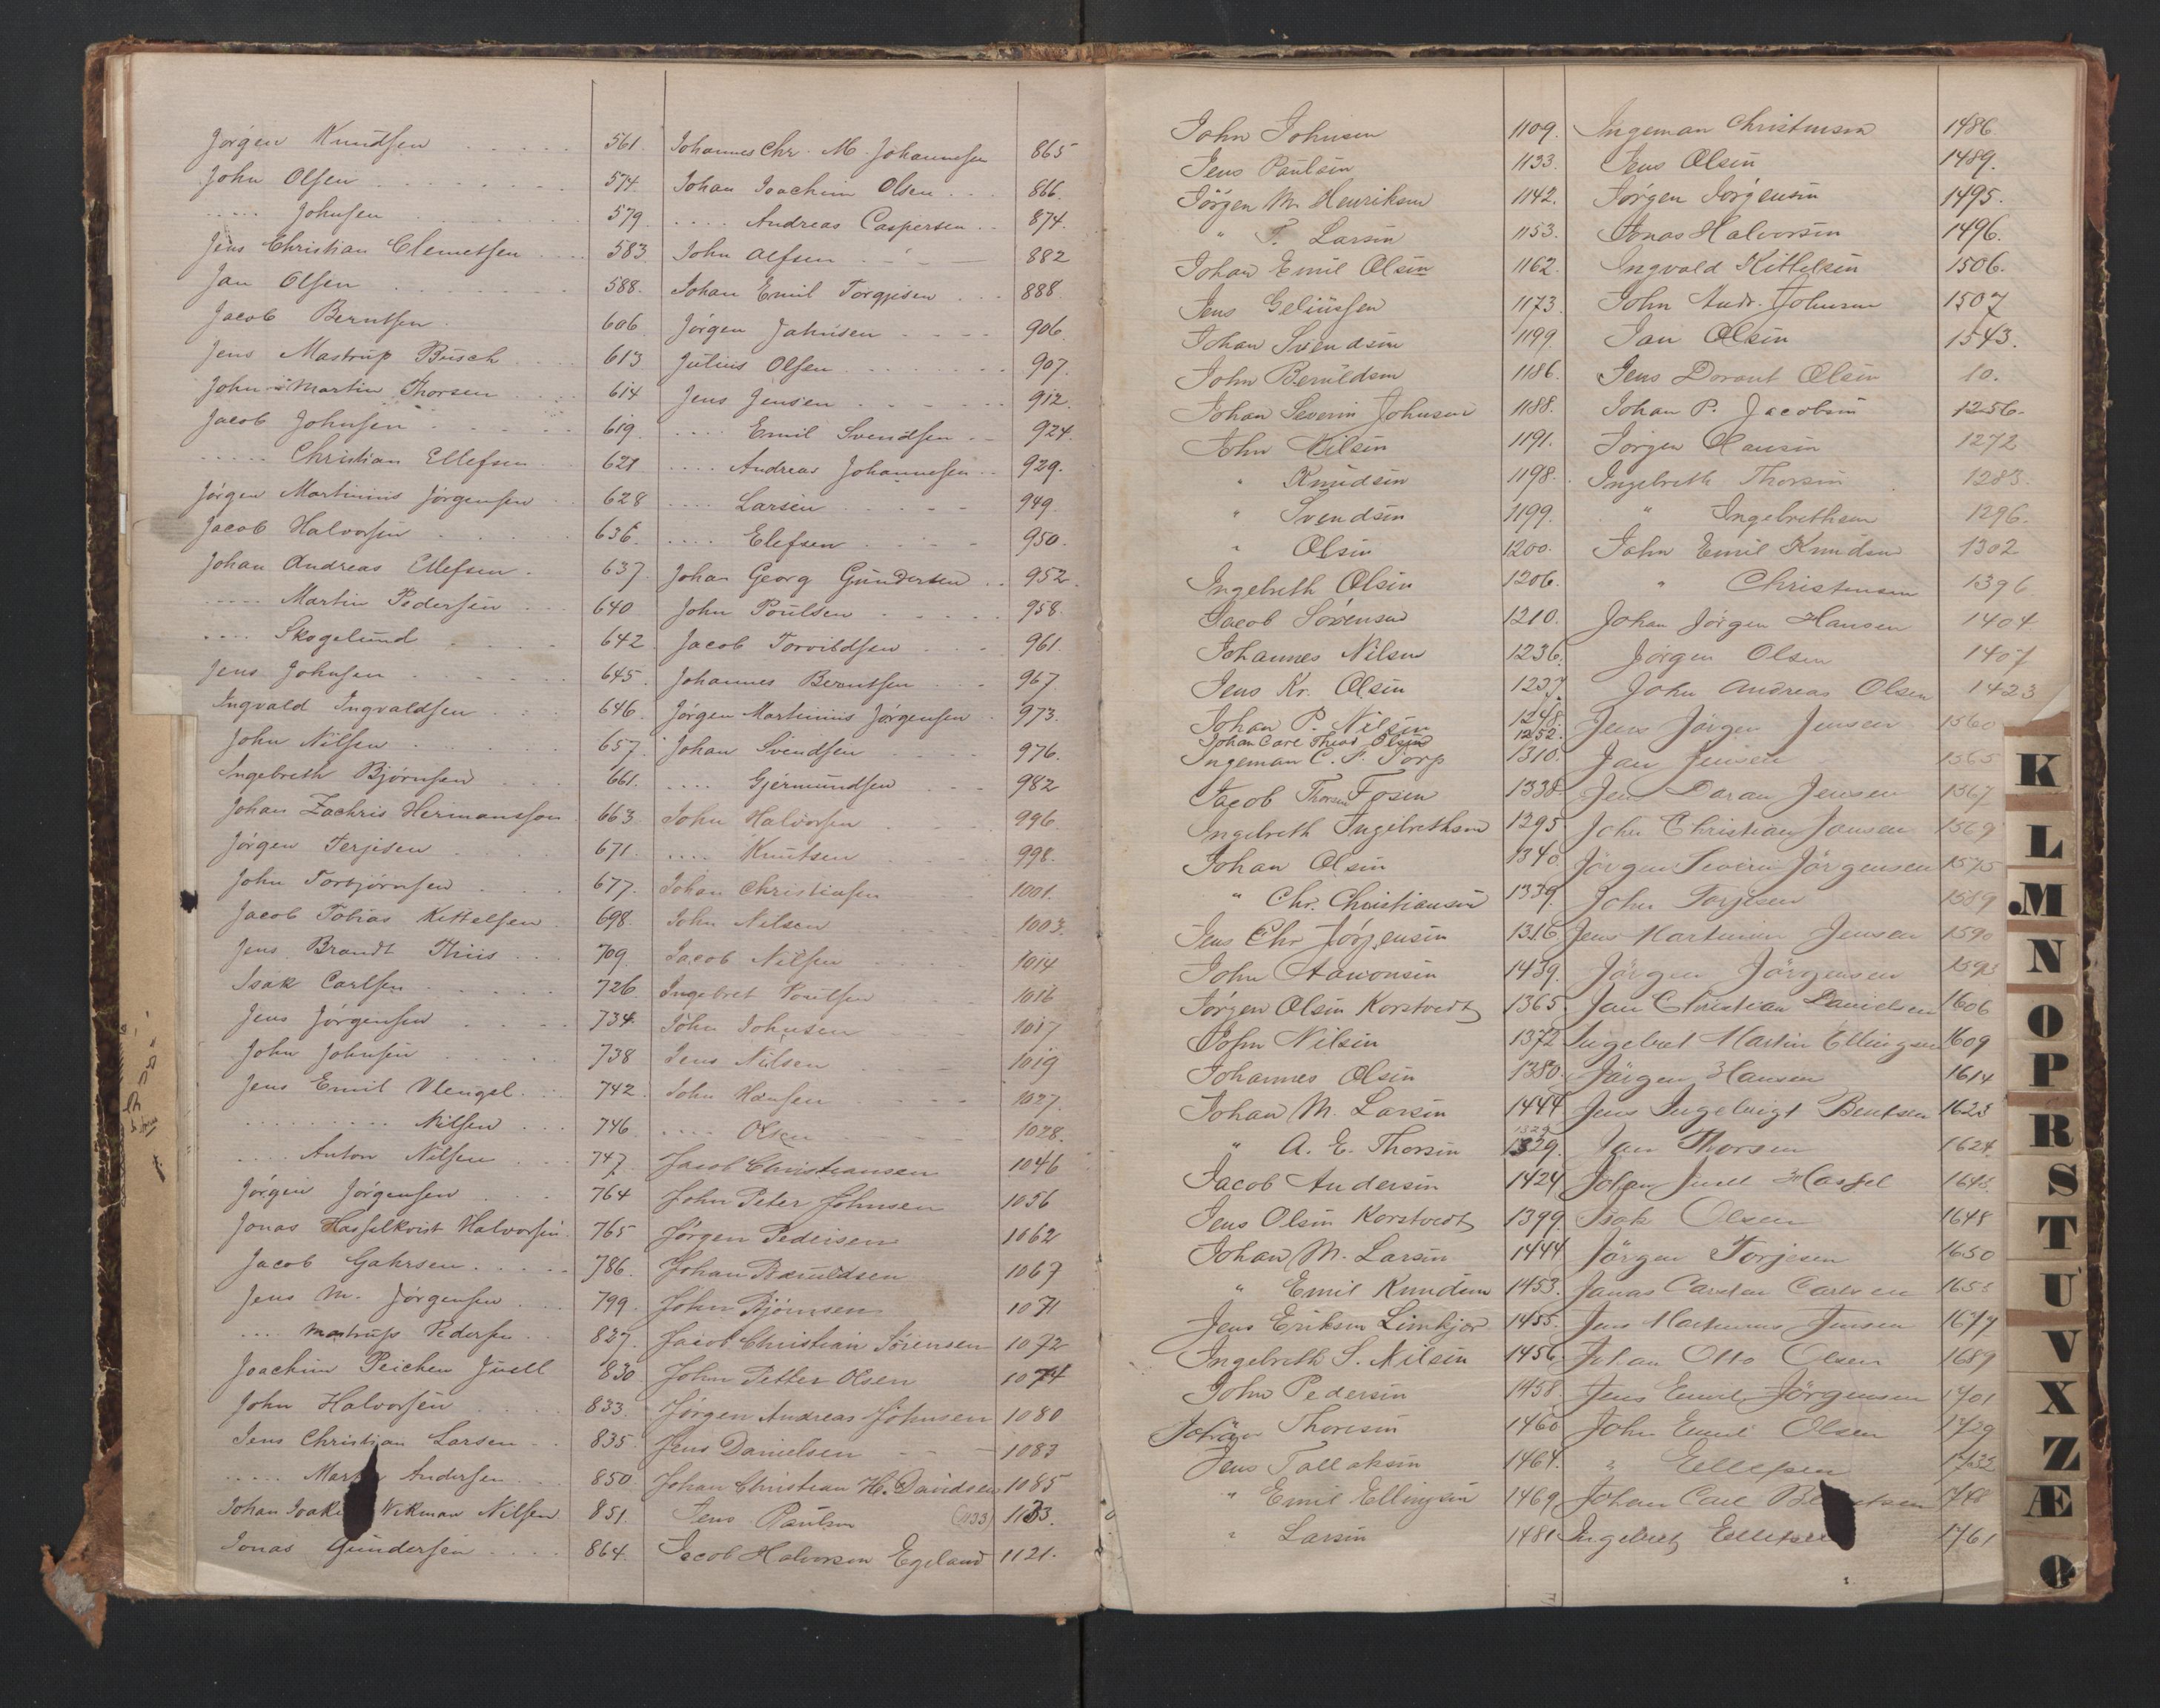 Jørgen Knudsen 561.
John Olsen 574.
..... Johnsen 579.
Jens Christian Clemetsen 583.
Jan Olsen 588.
Jacob Berntsen 606.
Jens Mastrup Busch 613
John Martin Thorsen 614
Jacob Johnsen 619.
..... Christian Ellefsen 621
Jørgen Martinius Jørgensen 628
Jacob Halvorsen 636.
Johan Andreas Ellefsen 637.
..... Martin Pedersen 640
.... Skogelund 642
Jens Johnsen 645.
Ingvald Ingvaldsen 646.
John Nilsen 657.
Ingebreth Bjørnsen 661.
Johan Zachris Hermansson 663.
Jørgen Terjesen 671.
John Torbjørnsen 677.
Jacob Tobias Kittelsen 698.
Jens Brandt Thiis 709.
Isak Carlsen 726.
Jens Jørgensen 734.
John Johnsen 738
Jens Emil Wengel 742.
......... Nilsen 746.
.... Anton Nilsen 747.
Jørgen Jørgensen 764
Jonas Hasselkvist Halvorsen 765
Jacob Gahrsen 786.
Jens M. Jørgensen 799.
.... Mastrup Pedersen 827.
Joachim Reichen Juell 830
John Halvorsen 833.
Jens Christian Larsen 835.
..... Andersen 850
Johan Wikman Nilsen 851.
Jonas Gundersen 864.
Johannes Chr. M. Johannesen 865
Johan Joachim Olsen 866.
.... Andreas Caspersen 874.
John Alfsen 882
Johan Emil Torgjesen 888
Jørgen Jahnsen 906.
Julius Olsen 907.
Jens Jensen 912.
.... Emil Svendsen 924.
.... Andreas Johannesen 929.
.... Larsen 949.
.... Elefsen 950.
Johan Georg Gundersen 952.
John Poulsen 958.
Jacob Torvildsen 961.
Johannes Berntsen 967.
Jørgen Martinius Jørgensen 973.
Johan Svendsen 976.
.... Gjermundsen 982
John Halvorsen 996.
.... Knutsen 998.
Johan Christiansen 1001.
John Nilsen 1003.
Jacob Nilsen 1014
Ingebret Poulsen 1016
John Johnsen 1017
Jens Nilsen 1019
John Hansen 1027.
.... Olsen 1028.
Jacob Christiansen 1046
John Peter Johnsen 1056
Jørgen Pedersen 1062
Johan Baruldsen 1067
John Bjørnsen 1071
Jacob Christian Sørensen 1072
John Petter Olsen 1074
Jørgen Andreas Johnsen 1080
Jens Danielsen 1083
Johan Christian H. Davidsen 1085
Jens Paulsen (1133) 1133.
Jacob Halvorsen Egeland 1121.
John Johnsen 1109.
Jens Paulsen 1133.
Jörgen M. Henriksen 1142.
" T. Larsen 1153.
Johan Emil Olsen 1162.
Jens Geliussen 1173.
Johan Svendsen 1199.
John Beruldsen 1186.
Johan Severin Johnsen 1188.
John Nilsen 1191.
" Knudsen 1198.
" Svendsen 1199.
" Olsen 1200.
Ingebreth Olsen 1206.
Jacob Sørensen 1210.
Johannes Nilsen 1236.
Jens Kr. Olsen 1237.
Johan P. Nilsen 1248.
Johan Carl Theod. Olsen 1252.
Ingeman C. F. Torp 1310.
Jacob Thorsen Fosen 1338
Ingebreth Ingebrethsen 1295
Johan Olsen 1340
" Chr. Christiansen 1339.
Jens Chr Jørgensen 1316
John Aanonsen 1439.
Jørgen Olsen Korstvedt 1365.
John Nilsen 1372
Johannes Olsen 1380.
Johan M. Larsen 1444
" A. E. Thorsen 1329.
Jacob Andersen 1424
Jens Olsen Korstvedt 1399.
Johan M. Larsen 1444
" Emil Knudsen 1453.
Jens Eriksen Limkjær 1455.
Ingebreth S. Nilsen 1456.
John Pedersen 1458.
Johan Thorsen 1460
Jens Tallaksen 1464.
" Emil Ellingsen 1469
" Larsen 1481
Ingeman Christensen 1486.
Jens Olsen 1489.
Jørgen Jørgensen 1495.
Jonas Halvorsen 1496.
Ingvald Kittelsen 1506.
John Andr. Johnsen 1507
Jan Olsen 1543.
Jens Dorant Olsen 10.
Johan P. Jacobsen 1256.
Jörgen Hansen 1272
Ingebreth Thorsen 1283.
" Ingebrethsen 1296.
John Emil Knudsen 1302
" Christensen 1396
Johan Jörgen Hansen 1404
Jörgen Olsen 1407
John Andreas Olsen 1423
Jens Jörgen Jensen 1560
Jan Jensen 1565
Jens Daran Jensen 1567
John Christian Jansen 1569
Jörgen Severin Jörgensen 1575
John Torjesen 1589
Jens Martinius Jensen 1590
Jörgen Jörgensen
Jan Christian Danielsen 1606
Ingebret Martin Ellingsen 1609
Jörgen Hansen 1614
Jens Ingebrigt Bentsen 1623
Jan Thorsen 1624.
Johan Juell Hassel
Isak Olsen 1648
Jörgen Torjesen 1650
Jonas Carsten Carlsen
Jens Martinius Jensen 1677
Johan Otto Olsen 1689
Jens Emil Jörgensen 1701
John Emil Olsen 1729
" Ellefsen 1732
Johan Carl 1748
Ingebret Ellefsen 1761
K
L
M
N
O
P
R
S
T
U
V
X
Z
Æ
Ø